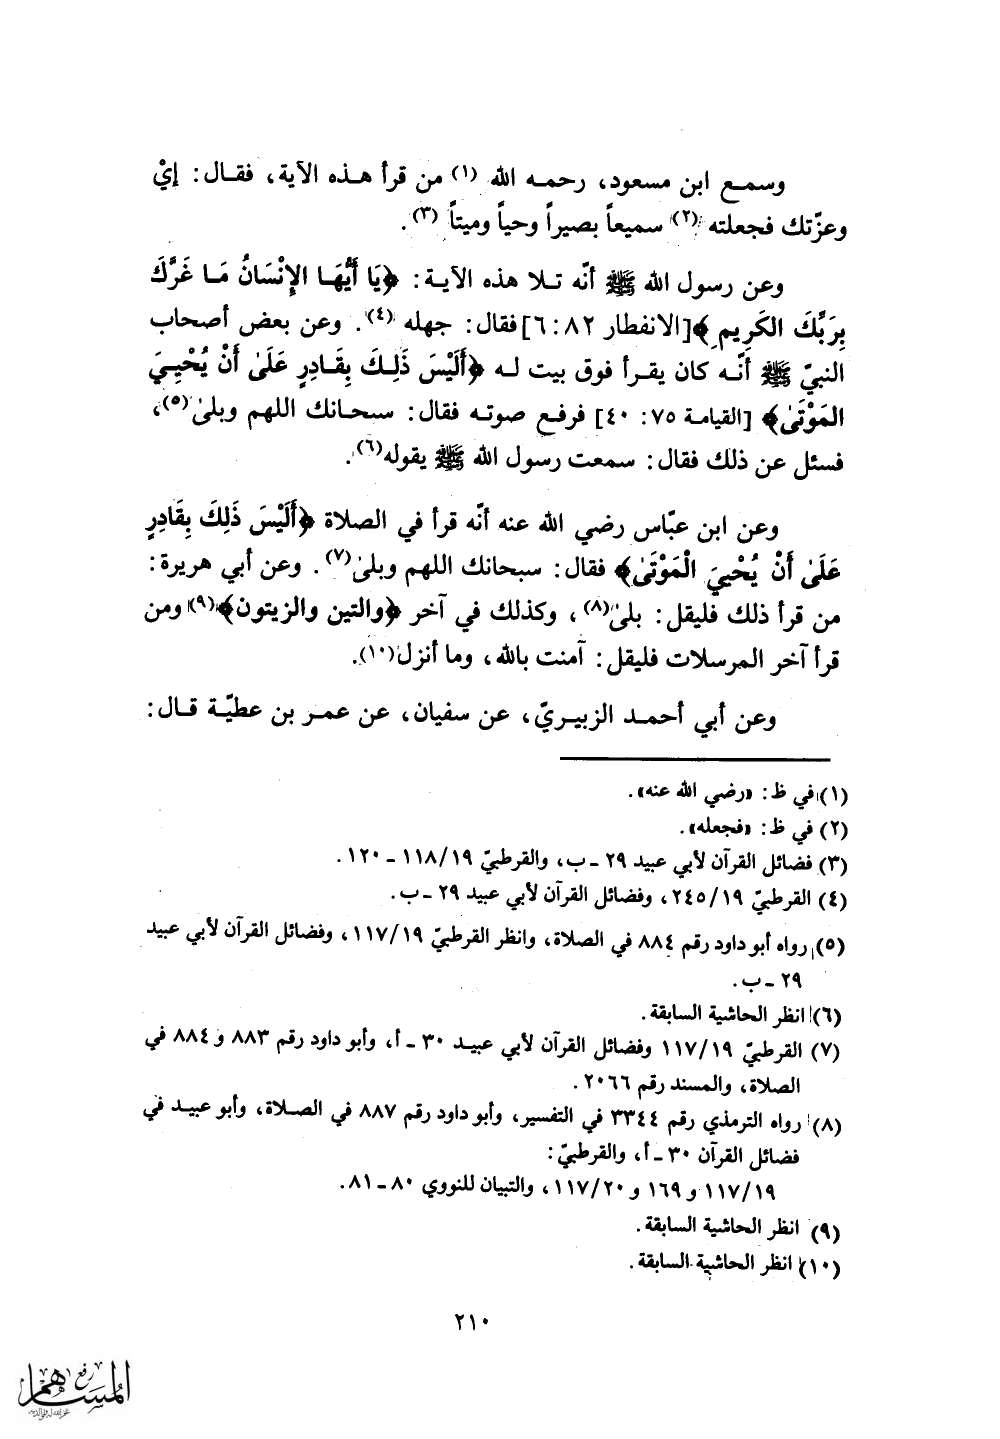 وسمع ابن مسعود، رحمه الله (١) من قرأ هذه الآية، فقال: إيْ
وعزّتك فجعلته (٢) سميعاً بصيراً وحياً وميتاً (٣).
وعن رسول الله ﷺ أنّه تلا هذه الآية: ﴿يَا أَيُّهَا الإِنْسَانُ مَا غَرَّكَ
بِرَبِّكَ الكَرِيمِ﴾ [الانفطار ٨٢: ٦] فقال: جهله (٤). وعن بعض أصحاب
النبيّ ﷺ أنّه كان يقرأ فوق بيت له ﴿أَلَيْسَ ذَلِكَ بِقَادِرٍ عَلَىٰ أَنْ يُحْيِيَ
المَوْتَىٰ﴾ [القيامة ٧٥: ٤٠] فرفع صوته فقال: سبحانك اللهم وبلىٰ(٥)،
فسئل عن ذلك فقال: سمعت رسول الله ﷺ يقوله(٦).
وعن ابن عبّاس رضي الله عنه أنّه قرأ في الصلاة ﴿أَلَيْسَ ذَلِكَ بِقَادِرٍ
عَلَىٰ أَنْ يُحْيِيَ الْمَوْتَىٰ﴾ فقال: سبحانك اللهم وبلىٰ(٧). وعن أبي هريرة:
من قرأ ذلك فليقل: بلىٰ(٨)، وكذلك في آخر ﴿والتين والزيتون﴾(٩) ومن
قرأ آخر المرسلات فليقل: آمنت بالله، وما أنزل(١٠).
وعن أبي أحمد الزبيريّ، عن سفيان، عن عمر بن عطيّة قال:
(١) في ظ: «رضي الله عنه».
(٢) في ظ: «فجعله».
(٣) فضائل القرآن لأبي عبيد ٢٩ ـ ب، والقرطبيّ ١١٨/١٩ ـ ١٢٠.
(٤) القرطبيّ ٢٤٥/١٩، وفضائل القرآن لأبي عبيد ٢٩ ـ ب.
(٥) رواه أبو داود رقم ٨٨٤ في الصلاة، وانظر القرطبيّ ١١٧/١٩، وفضائل القرآن لأبي عبيد
٢٩ ـ ب.
(٦) انظر الحاشية السابقة.
(٧) القرطبيّ ١١٧/١٩ وفضائل القرآن لأبي عبيد ٣٠ ـ أ، وأبو داود رقم ٨٨٣ و ٨٨٤ في
الصلاة، والمسند رقم ٢٠٦٦.
(٨) رواه الترمذي رقم ٣٣٤٤ في التفسير، وأبو داود رقم ٨٨٧ في الصلاة، وأبو عبيد في
فضائل القرآن ٣٠ ـ أ، والقرطبيّ:
١١٧/١٩ و ١٦٩ و ١١٧/٢٠، والتبيان للنووي ٨٠ ـ ٨١.
(٩) انظر الحاشية السابقة.
(١٠) انظر الحاشية السابقة.
٢١٠
رفع
المساهم